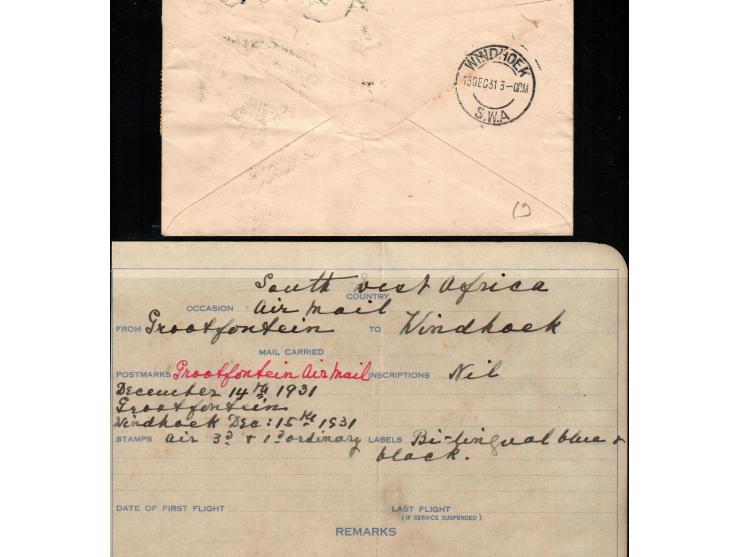 WINDHOEK
15 DEC 31 3-00PM
S.W.A
South West Africa
COUNTRY
OCCASION Air Mail
FROM Grootfontein TO Windhoek
MAIL CARRIED
POSTMARKS Grootfontein Air Mail INSCRIPTIONS Nil
December 14th 1931
Grootfontein
Windhoek Dec: 15th 1931
STAMPS Air 3d + 1d ordinary LABELS Bi-lingual blue +
black.
DATE OF FIRST FLIGHT LAST FLIGHT
(IF SERVICE SUSPENDED)
REMARKS